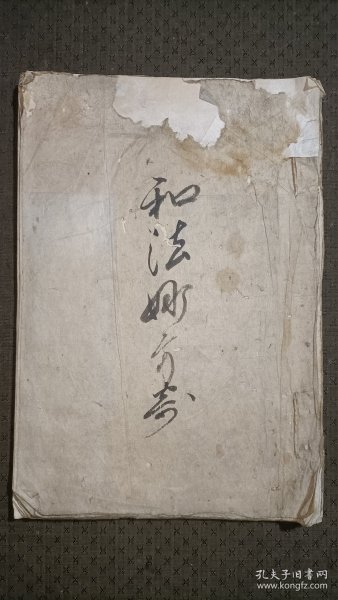 和法妙方寿
孔夫子旧书网
www.kongfz.com